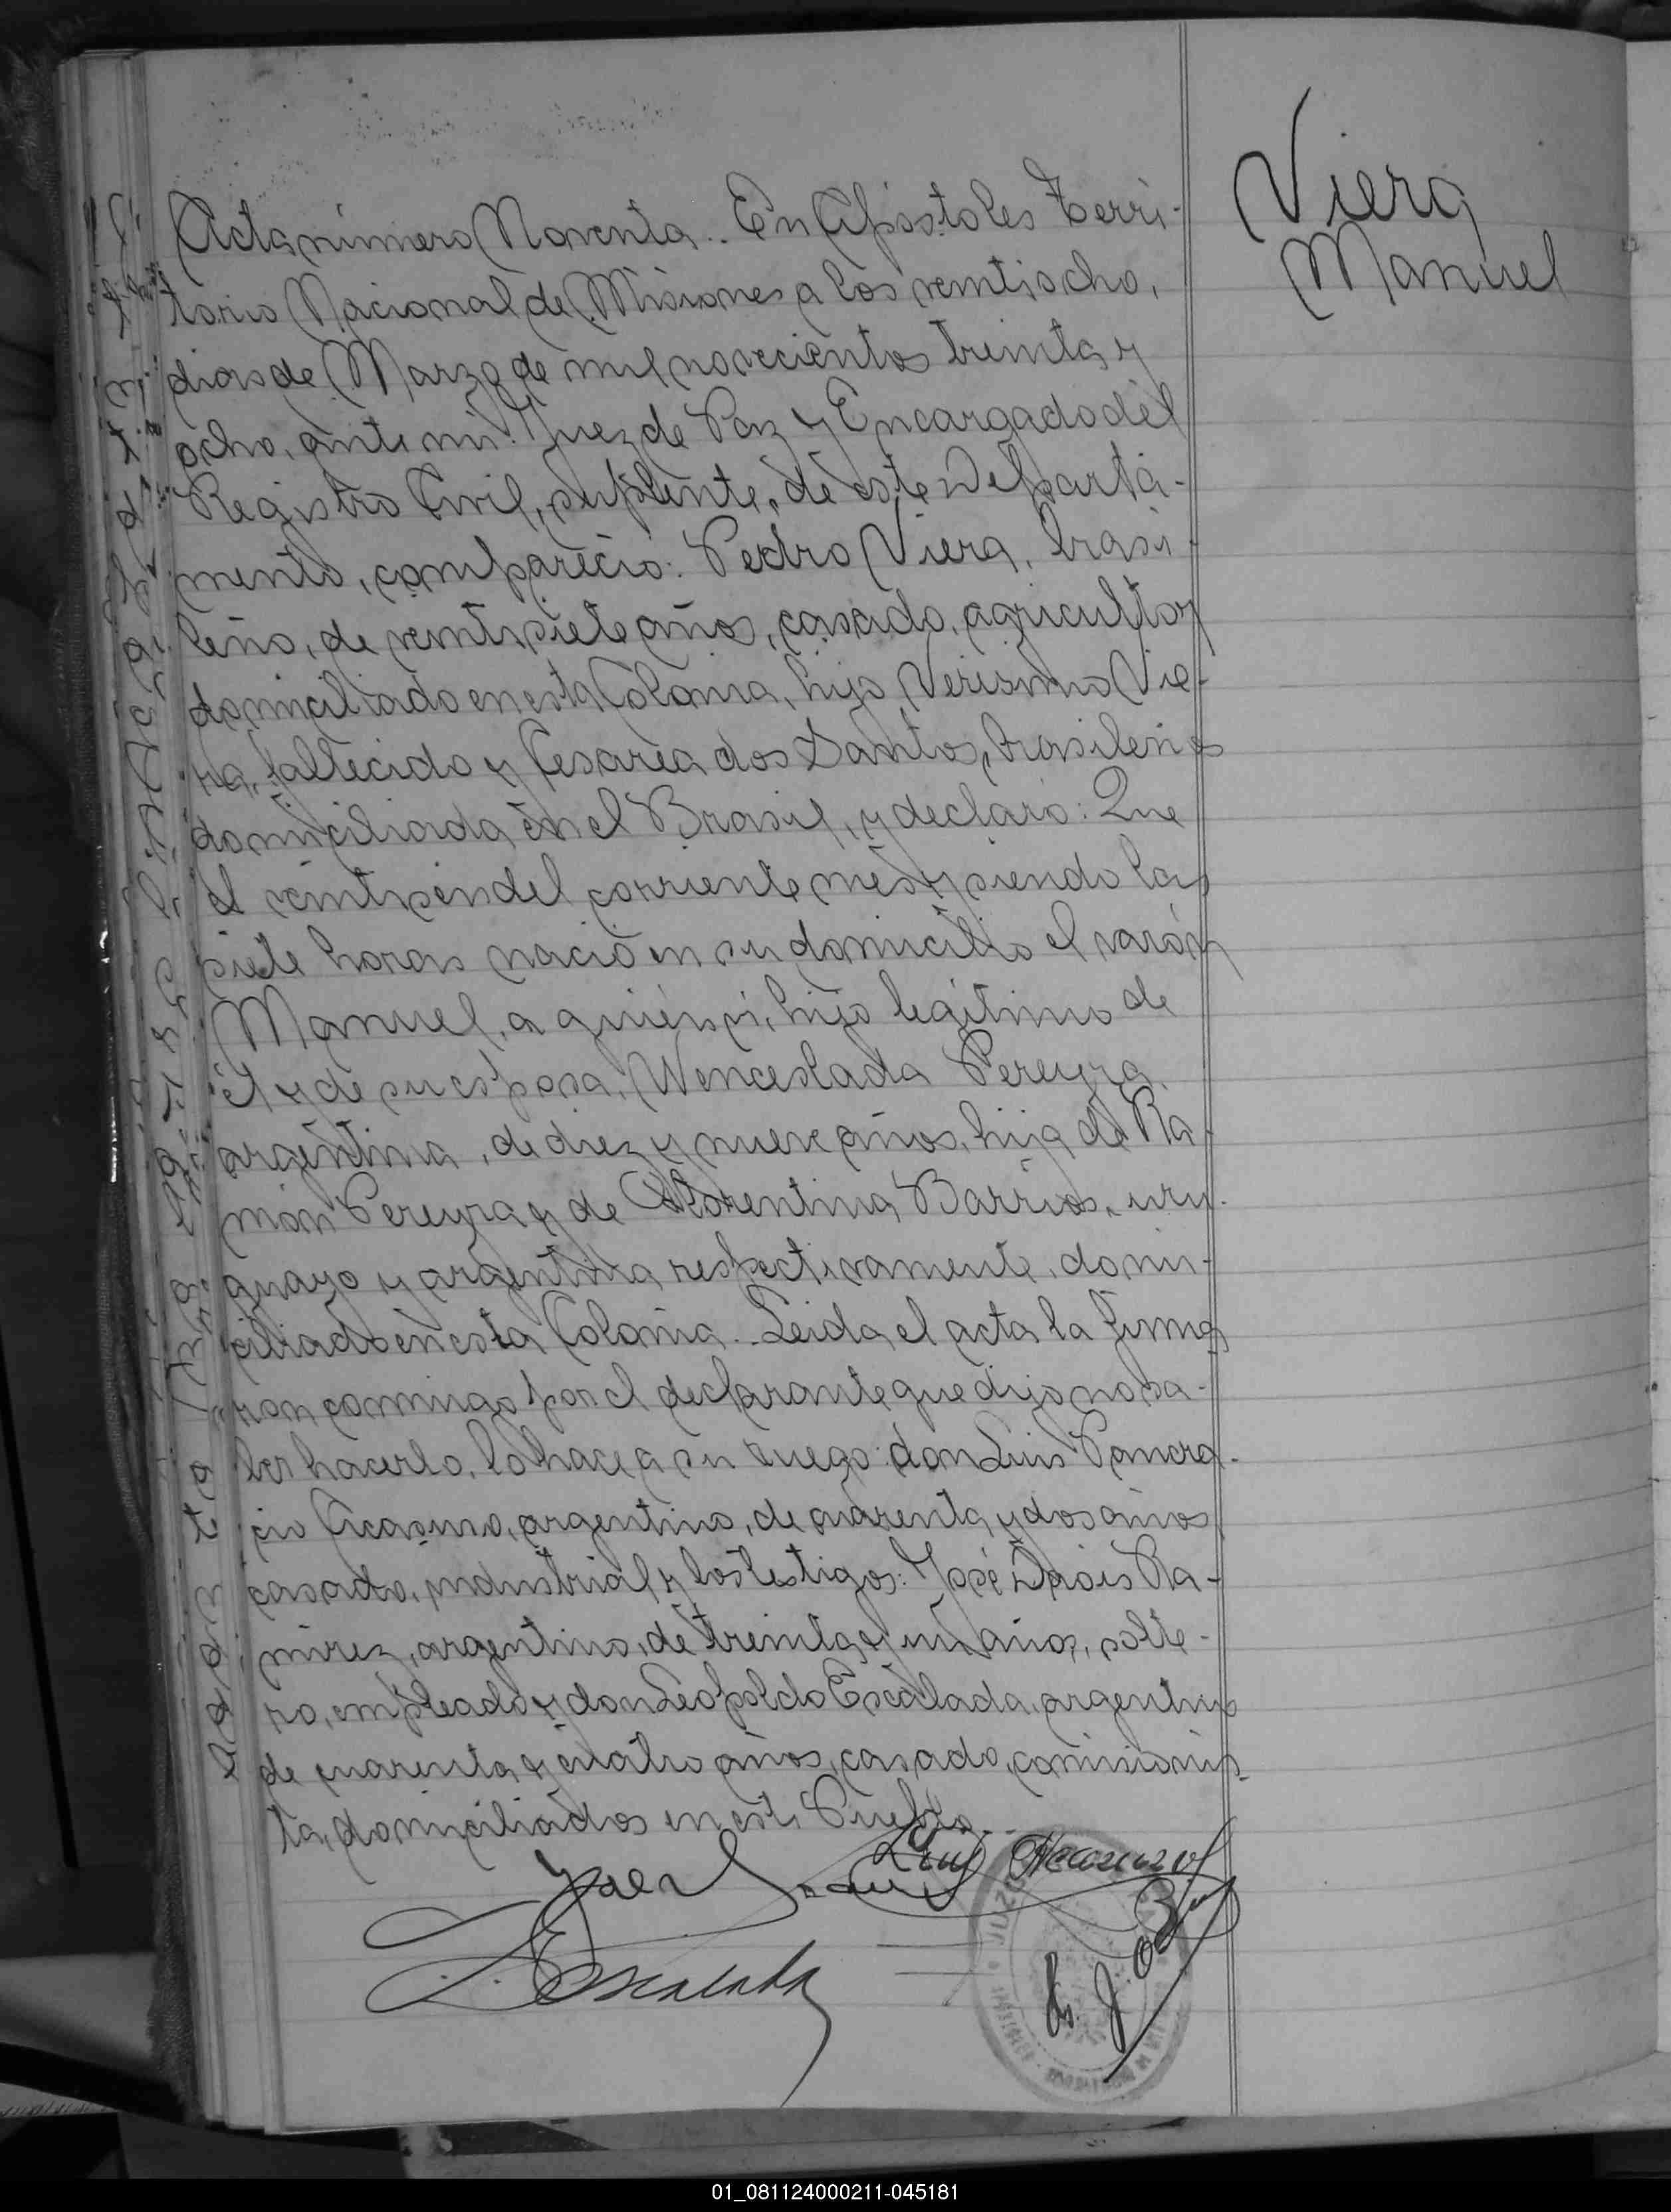 Viera
Manuel
Acta número Noventa.. En Apóstoles Terri-
torio Nacional de Misiones a los veintiocho,
dias de Marzo de mil novecientos treinta y
ocho, ante mi: Juez de Paz y Encargado del
Registro Civil, suplente, de este Departa-
mento, compareció: Pedro Viera, brasi-
leño, de veintisiete años, casado, agricultor
domiciliado en esta Colonia, hijo Verisimo Vie-
ra, fallecido y Cesarea dos Santos, brasileños
domiciliada en el Brasil, y declaró: Que
el veintiseis del corriente mes y siendo las
siete horas nació en su domicilio el varón
Manuel, a quién ví, hijo legítimo de
él y de su esposa, Wenceslada Pereyra,
argentina, de diez y nueve años, hija de Ra-
món Pereyra y de Florentina Barrios, uru-
guayo y argentina respectivamente, domi-
ciliado en esta Colonia.. Leida el acta la firma
ron conmigo por el declarante que dijo no sa-
ber hacerlo, lo hace a su ruego: don Luis Pancra-
cio Acasuso, argentino, de cuarenta y dos años
casado, industrial y los testigos: José Ra-
mirez, argentino, de treinta y un años, solte-
ro, empleado y don Leopoldo Escalada, argentino
de cuarenta y cuatro años, casado, comisionis-
ta, domiciliados en este Pueblo..
Luis Acasuso
L. Escalada
JUZGADO
01_081124000211-045181